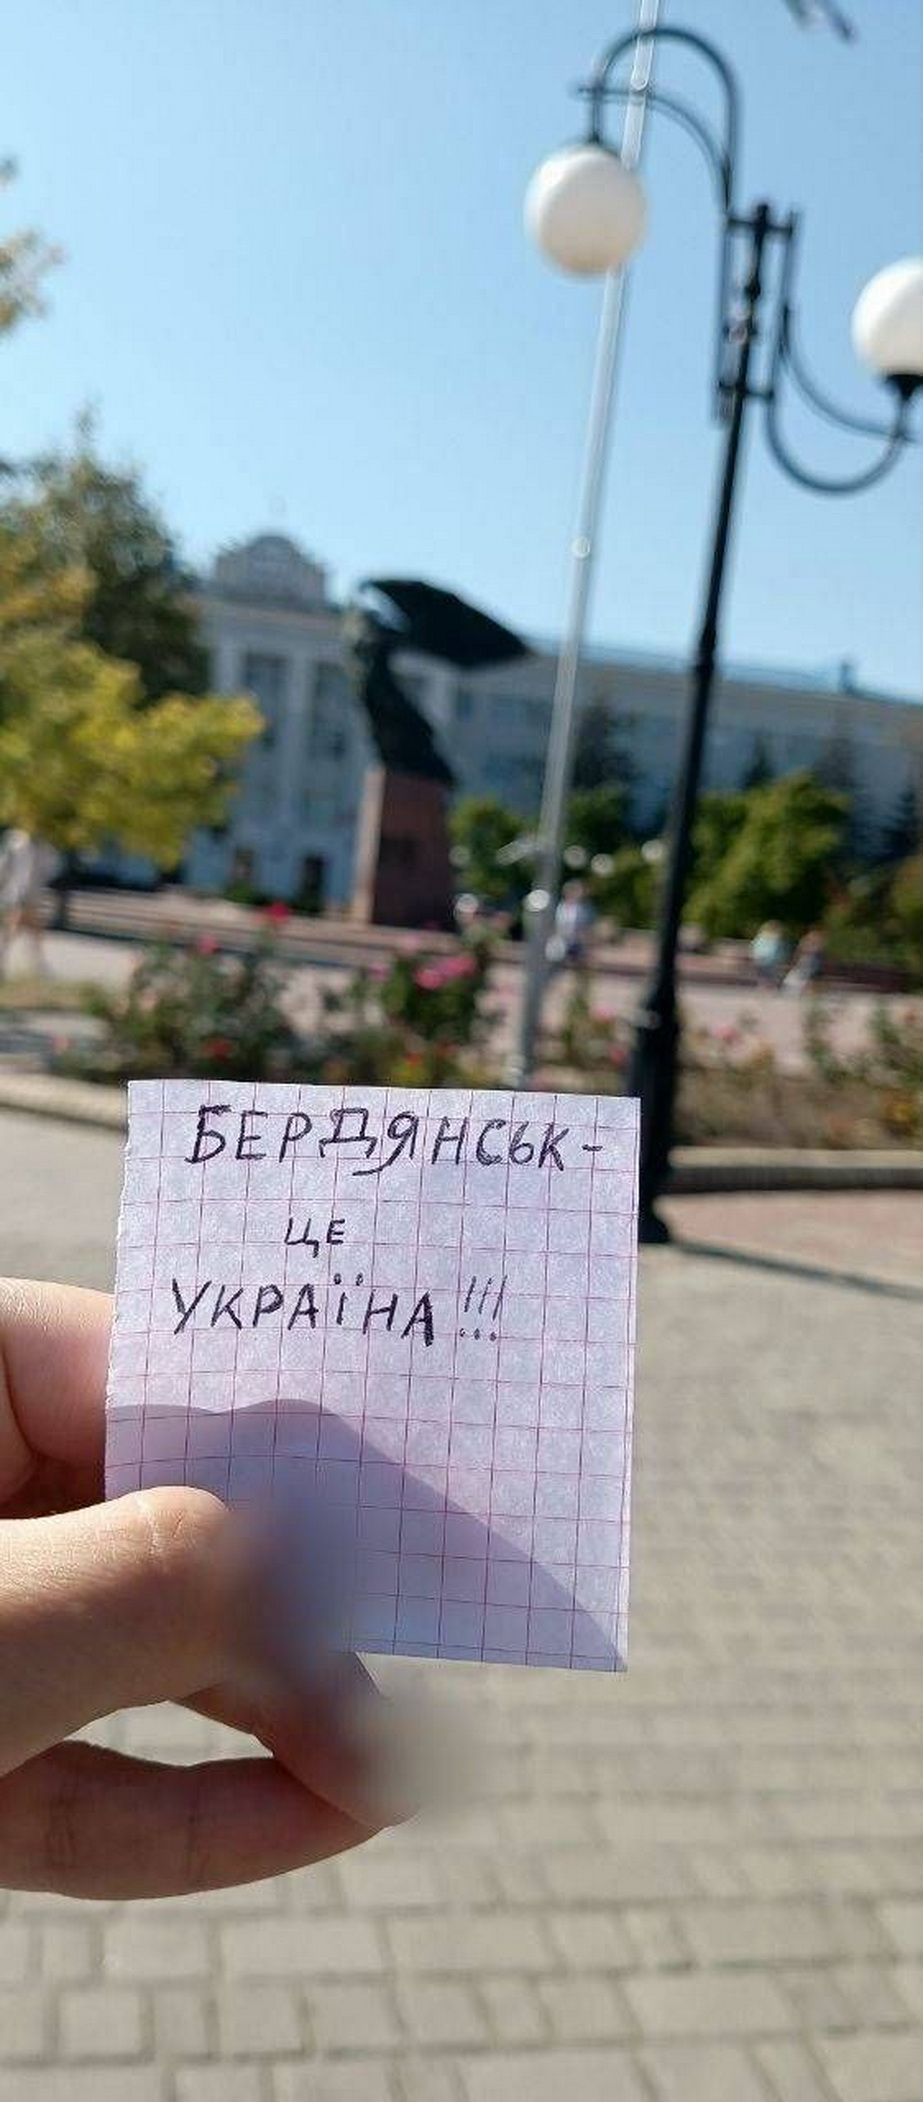 БЕРДЯНСЬК-
ЦЕ
УКРАЇНА!!!